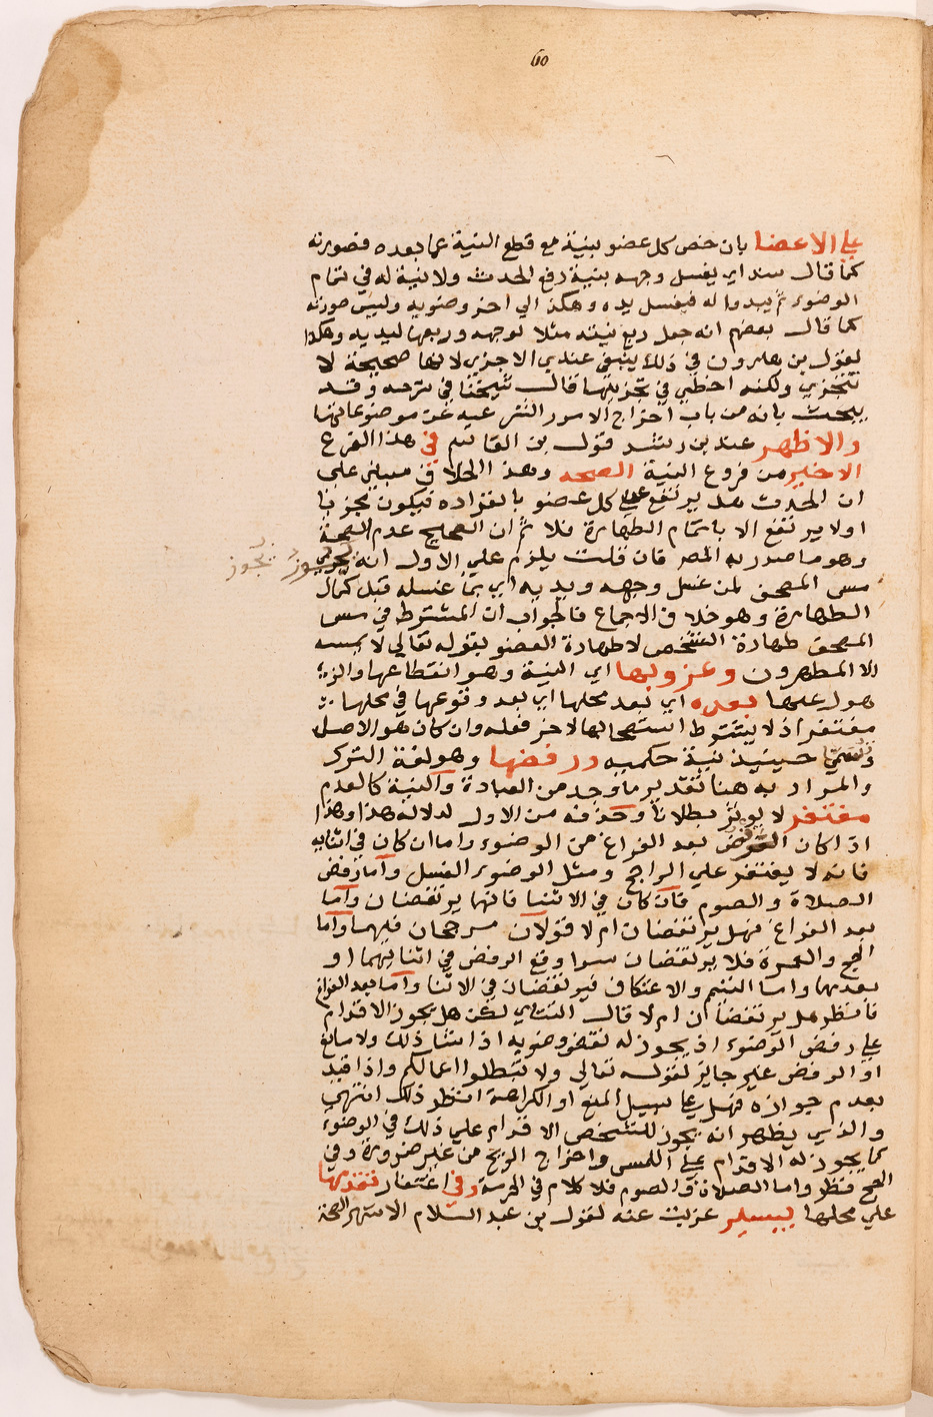 60
علي الاعضا بان خص كل عضو بنية مع قطع النية عما بعده فصورته
كما قال سند اي يغسل وجهه بنية رفع الحدث ولا نية له في تمام
الوضوء ثم يبدوا له فيغسل يده وهكذا الي اخر وضويه وليس صورته
كما قال بعضهم انه جعل ربع نيته مثلا لوجهه وربعها ليديه وهكذا
لقول بن هارون في ذلك ينبغي عندي الاجزي لانها صحيحة لا
تتجزي ولكنه اخطي في تجزيتها قال شيخنا في شرحه وقد
يبحث بانه من باب اخراج الامور الشرعيه عن موضوعاتها
والاظهر عند بن رشد قول بن القاسم في هذا الفرع
الاخير من فروع النية الصحه وهذا الخلاف مبني علي
ان الحدث هل يرتفع عن كل عضو بانفراده فيكون مجزيا
او لا يرتفع الا باتمام الطهارة فلا ثم ان الصحيح عدم الصحة
وهو ما صدر به المصر فان قلت يلزم علي الاول انه يجوز
يجوز
مس المصحف لمن غسل وجهه ويديه اي بما غسله قبل كمال
الطهارة وهو خلاف الاجماع فالجواب ان المشترط في مس
المصحف طهارة الشخص لا طهارة العضو بقوله تعالي لا يمسه
الا المطهرون وعزوبها اي النية وهو انقطاعها والذ
هول عنها بعده اي بعد محلها اي بعد وقوعها في محلها
مغتفر اذ لا يشترط استصحابها لاخر فعله وان كان هو الاصل
وتسمي حينيذ نية حكميه ورفضها وهو لغة الترك
والمراد به هنا تقدير ما وجد من العبادة والنية كالعدم
مغتفر لا يوثر بطلانا وحذفه من الاول لدلالة هذا وهذا
اذا كان الرفض بعد الفراغ من الوضوء واما ان كان في اثنايه
فانه لا يغتفر علي الراجح ومثل الوضوء الغسل واما رفض
الصلاة والصوم فان كان في الاثنا فانهما يرتفضان واما
بعد الفراغ فهل يرتفضان ام لا قولان مرجحان فيهما واما
الحج والعمرة فلا يرتفضان سوا وقع الرفض في اثنايهما او
بعدهما واما التيمم والاعتكاف فيرتفضان في الاثنا واما بعد الفراغ
فانظر هل يرتفضان ام لا قال التتاي لكن هل يجوز الاقدام
علي رفض الوضوء اذ يجوز له نقض وضويه اذا شا ذلك ولا مانع
او الرفض غير جايز لقوله تعالي ولا تبطلوا اعمالكم واذا قيل
بعدم جوازه فهل علي سبيل المنع او الكراهة انظر ذلك انتهي
والذي يظهر انه يجوز للشخص الاقدام علي ذلك في الوضوء
كما يجوز له الاقدام علي اللمس واخراج الريح من غير ضرورة وفي
الحج نظر واما الصلاة والصوم فلا كلام في الحرمة وفي اغتفار تقدمها
علي محلها بيسير عزبت عنه لقول بن عبد السلام الاشهر الصحة